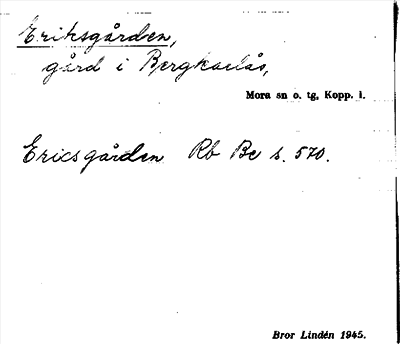 Eriksgården,
gård i Bergkarlås,
Mora sn o. tg, Kopp. l.
Ericsgården Rb Bc s. 570.
Bror Lindén 1945.